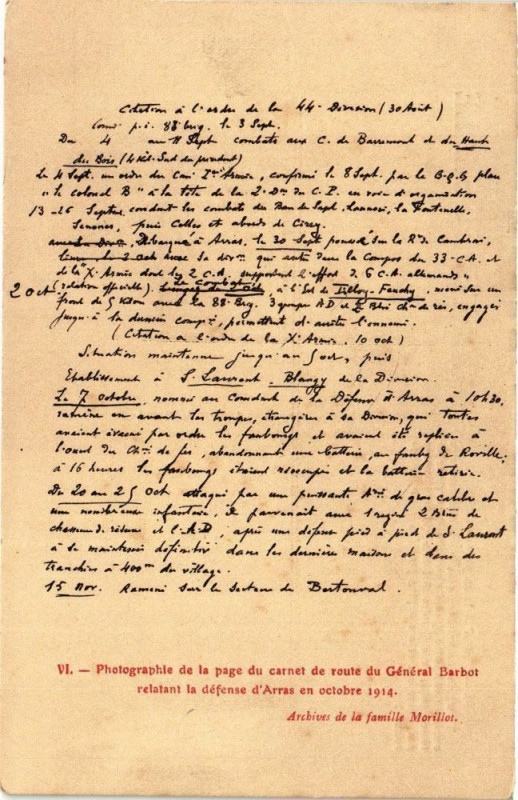 Citation à l'ordre de la 44e Division (30 Août)
Comt p.i. 88e brig. le 3 Sept.
Du 4 au 11 Sept combats au C. de Barremont et du Haut
du Bois (4 Kil. Sud du précédent)
Le 4 Sept. un ordre du Cant Ire Armée, confirmé le 8 Sept. par le G.Q.G place
"le colonel B" à la tête de la 2e Don du C.P. en voie d'organisation
13-26 Septbre conduit les combats du Ban de Sapt. Launois, la Fontenelle,
Senones, puis Celles et abords de Cirey.
Débarque à Arras, le 30 Sept poussé sur la Rte de Cambrai,
sa divon qui entre dans la Compos du 33e C.A. et
de la Xe Armée dont les 2 C.d. supportent l'effort de 6 C.A. allemands"
2 oct (relation officielle). Le Combat à l'Est de Tilloy-Feuchy, mené sur un
front de 5 Kilom avec la 88e Brig. 3 groupes AD et 2 Btns Ch. de rés, engagés
jusqu'à la dernière compie, permettent d'arrêter l'ennemi.
(Citation à l'ordre de la Xe Armée. 10 oct)
Situation maintenue jusqu'au 5 oct, puis
Etablissement à St Laurent. Blangy de la Division.
Le 7 octobre, nommé au Comdent de la Défense d'Arras à 10h30,
ramène en avant les troupes, étrangères à sa Division, qui toutes
avaient évacué par ordre les faubourgs et avaient été repliées à
l'ouest du Chin de fer, abandonnant une batterie au faubg de Ronville;
à 16 heures les faubourgs étaient réoccupés et la batterie retirée.
Du 20 au 25 Oct attaqué par une puissante Arie de gros calibre et
une nombreuse infanterie, il parvenait avec 1 regit 2 Btns de
chasseurs de réserve et l'A.D, après une défense pied à pied de St Laurent
à se maintenir définitivt dans les dernières maisons et dans des
tranchées à 400m du village.
15 Nov. Ramené sur le secteur de Berthonval
VI. — Photographie de la page du carnet de route du Général Barbot
relatant la défense d'Arras en octobre 1914.
Archives de la famille Morillot.